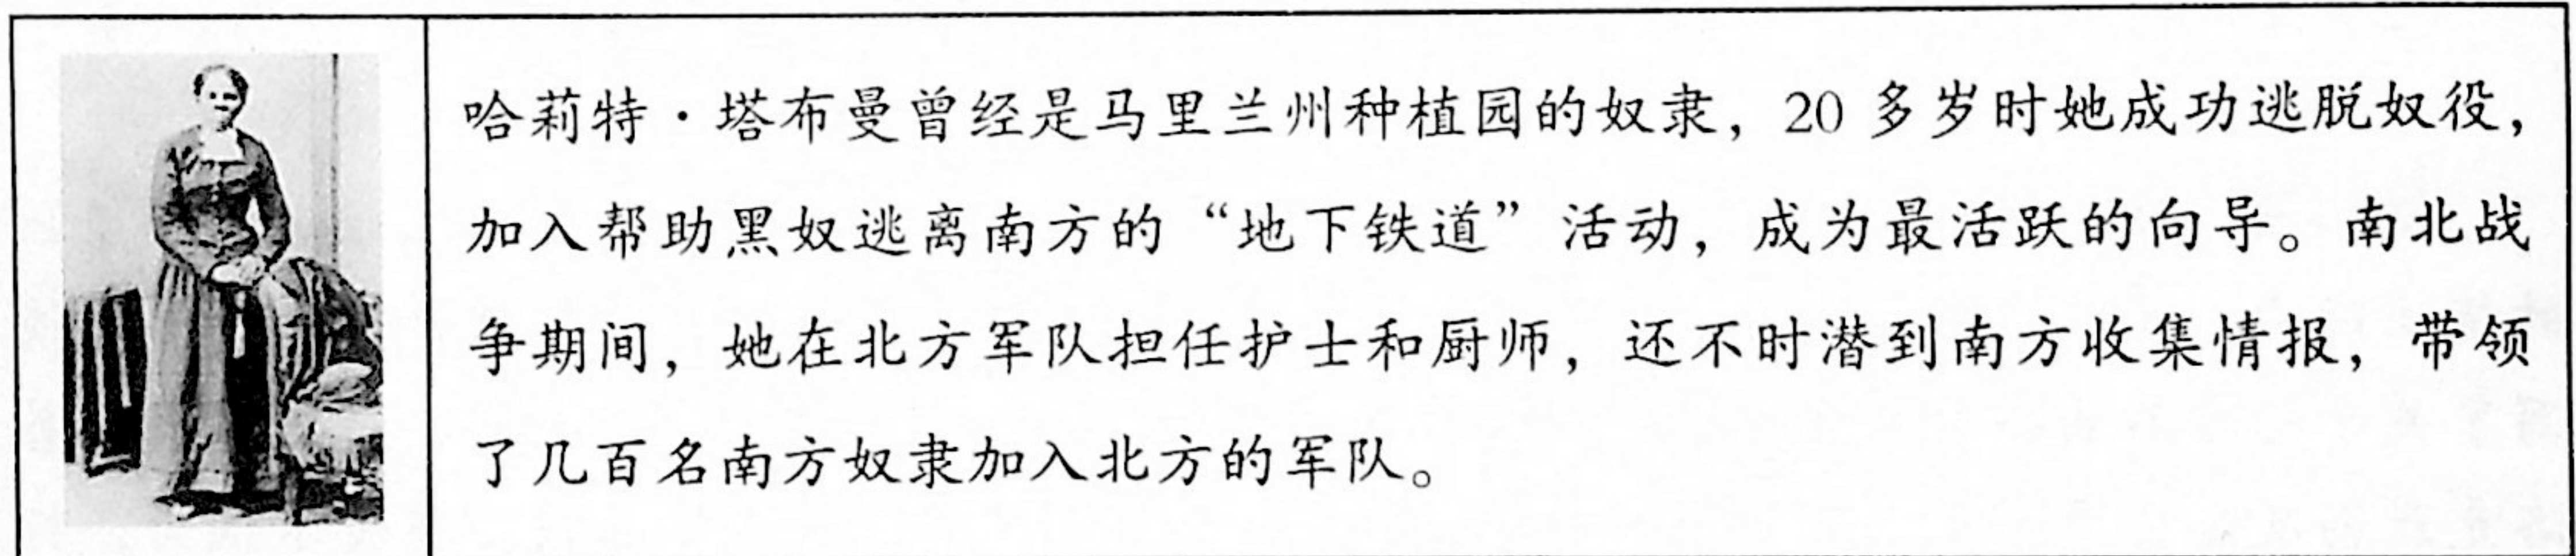 哈莉特·塔布曼曾经是马里兰州种植园的奴隶，20 多岁时她成功逃脱奴役，
加入帮助黑奴逃离南方的“地下铁道”活动，成为最活跃的向导。南北战
争期间，她在北方军队担任护士和厨师，还不时潜到南方收集情报，带领
了几百名南方奴隶加入北方的军队。